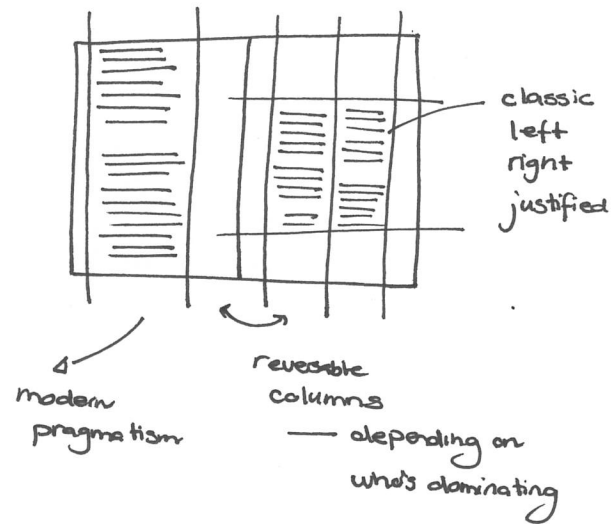 classic
left
right
justified
modern
pragmatism
reversable
columns
— depending on
who's dominating